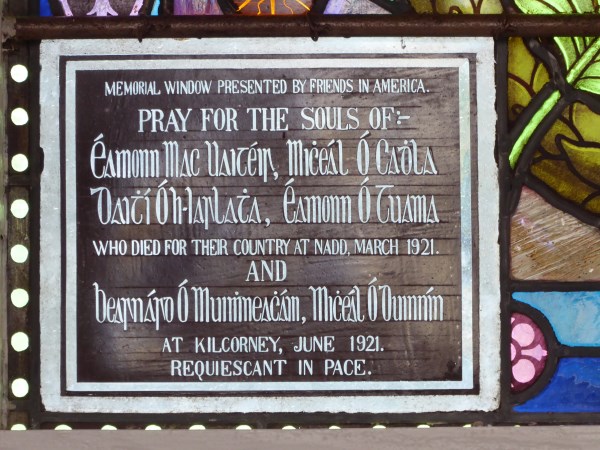 MEMORIAL WINDOW PRESENTED BY FRIENDS IN AMERICA.
PRAY FOR THE SOULS OF:-
Éamonn Mac Uaitéir, Miċeál Ó Caḋla
Daiṫí Óh-Iarlaṫa, Éamonn Ó Tuama
WHO DIED FOR THEIR COUNTRY AT NADD, MARCH 1921.
AND
Bearnárd Ó Muiṁneaċáin, Miċeál Ó Duinnín
AT KILCORNEY, JUNE 1921.
REQUIESCANT IN PACE.